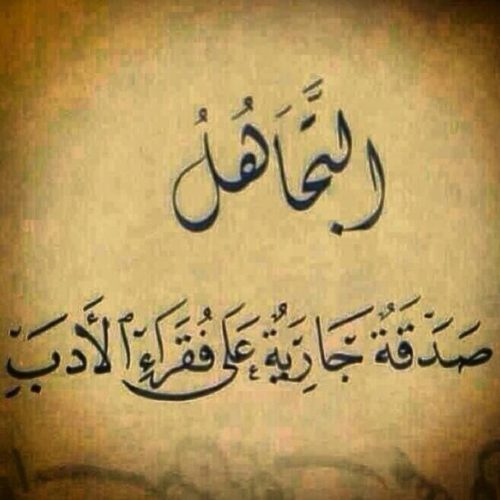 التَّجَاهُلُ
صَدَقَةٌ جَارِيَةٌ عَلَى فُقَرَاءِ الْأَدَبِ